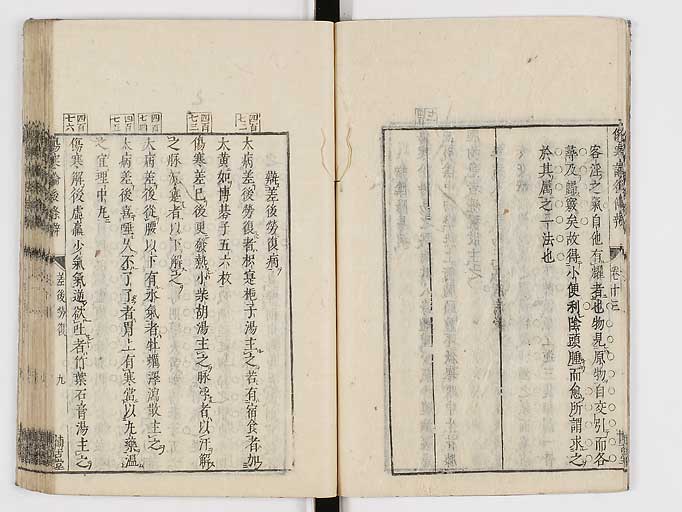 傷寒論後條辨
卷十三
客淫之氣自他有耀者也物見原物自交引而各
蒂及鑱竅矣故得小便利陰頭腫而愈所謂求之
於其屬之一法也
辨差後勞復病
四百七一
大病差後勞復者枳實梔子湯主之若有宿食者加
大黃如博碁子五六枚
四百七三
傷寒差已後更發熱小柴胡湯主之脉浮者以汗解
之脉沉實者以下解之
四百七四
大病差後從腰以下有水氣者牡蠣澤瀉散主之
四百七五
大病差後喜唾久不了了者胃上有寒當以丸藥溫
之宜理中丸
四百七六
傷寒解後虛羸少氣氣逆欲吐者竹葉石膏湯主之
傷寒論後條辨
差後勞復
九